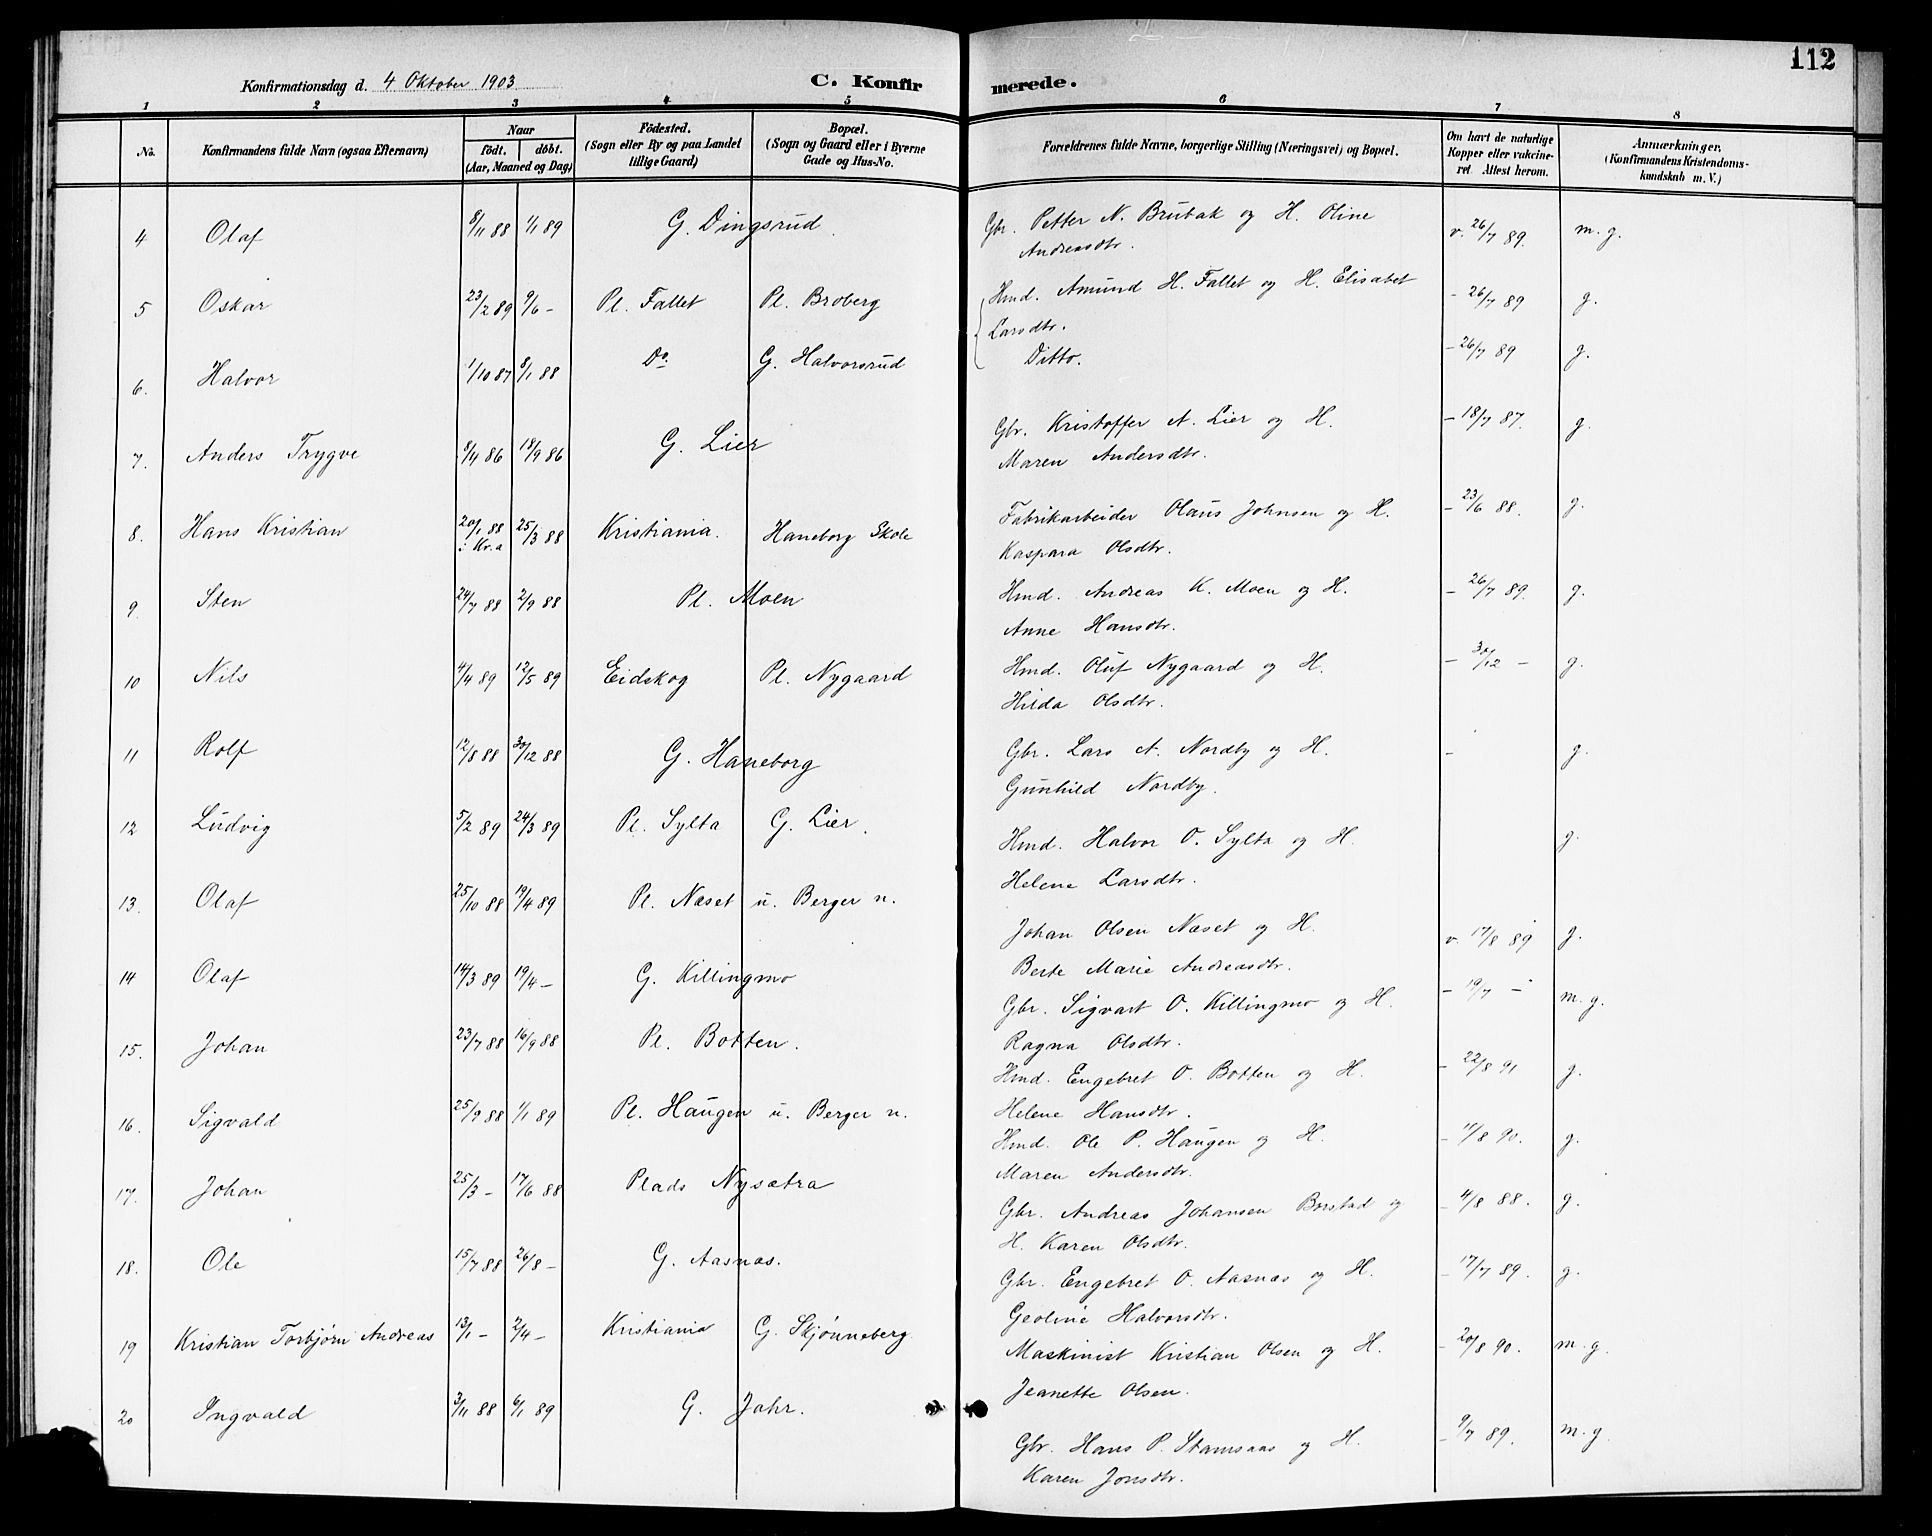 112
Konfirmationsdag d. 4 Oktober 1903
C. Konfirmerede.
1 2 3 4 5 6 7 8
No. Konfirmandens fulde Navn (ogsaa Efternavn) Naar födt. döbt. (Aar, Maaned og Dag) Födested. (Sogn eller By og paa Landet tillige Gaard) Bopæl. (Sogn og Gaard eller i Byerne Gade og Hus-No. Forældrenes fulde Navne, borgerlige Stilling (Næringsvei) og Bopæl. Om havt de naturlige Kopper eller vakcineret Attest herom. Anmærkninger. (Konfirmandens Kristendomskundskab m. V.)
4 Olaf 8/11 88 1/1 89 G. Dingsrud. Gbr. Petter N. Brubak og H. Oline v. 26/7 89. m. g.
Andreasdtr.
5 Oskar 23/2 89 9/6 – Pl. Fallet Pl. Broberg Hmd. Amund H. Fallet og H. Elisabet – 26/7 89 g.
Larsdtr.
6. Halvor 1/10 87 8/1 88 Do G. Halvorsrud Ditto. – 26/7 89 g.
7. Anders Trygve 8/4 86 18/9 86 G. Lier Gbr. Kristoffer A. Lier og H. – 18/7 87. g.
Maren Andersdtr.
8. Hans Kristian 20/1 88 i Kr.a 25/3 88 Kristiania. Haneborg Skole Fabrikarbeider Olaus Johnsen og H. – 23/6 88. g.
Kaspara Olsdtr.
9. Sten 24/7 88 2/9 88 Pl. Moen Hmd. Andreas K. Moen og H. – 26/7 89. g.
Anne Hansdtr.
10 Nils 4/4 89 12/5 89 Eidskog Pl. Nygaard Hmd. Oluf Nygaard og H. – 30/12 – g.
Hilda Olsdtr.
11 Rolf 12/8 88 30/12 88 G. Haneborg Gbr. Lars A. Nordby og H. – g.
Gunhild Nordby.
12 Ludvig 5/2 89 24/3 89 Pl. Sylta G. Lier. Hmd. Halvor O. Sylta og H. g.
Helene Larsdtr.
13. Olaf 25/10 88 19/4 89 Pl. Næset u. Berger n. Johan Olsen Næset og H. v. 17/8 89 g.
Berte Marie Andreasdtr.
14 Olaf 14/3 89 19/4 – G. Killingmo Gbr. Sigvart O. Killingmo og H. – 19/7 – m. g.
Ragna Olsdtr.
15. Johan 23/7 88 16/9 88 Pl. Botten. Hmd. Engebret O. Botten og H. – 22/8 91 g.
Helene Hansdtr.
16. Sigvald 25/9 88 1/1 89 Pl. Haugen u. Berger n. Hmd. Ole P. Haugen og H. – 11/8 90. g.
Maren Andersdtr.
17. Johan 25/3 – 17/6 88 Plads Nysætra Gbr. Andreas Johansen Borstad og – 4/8 88. g.
H. Karen Olsdtr.
18. Ole 15/7 88 26/8 – G. Aasnæs. Gbr. Engebret O. Aasnæs og H. – 17/7 89. g.
Geoline Halvorsdtr.
19 Kristian Torbjørn Andreas 13/1 – 2/4 – Kristiania G. Skjønneberg. Maskinist Kristian Olsen og H. – 20/8 90. m. g.
Jeanette Olsen.
20 Ingvald 3/11 88 6/1 89 G. Jahr. Gbr. Hans P. Stamsaas og H. – 9/7 89. m. g.
Karen Jonsdtr.